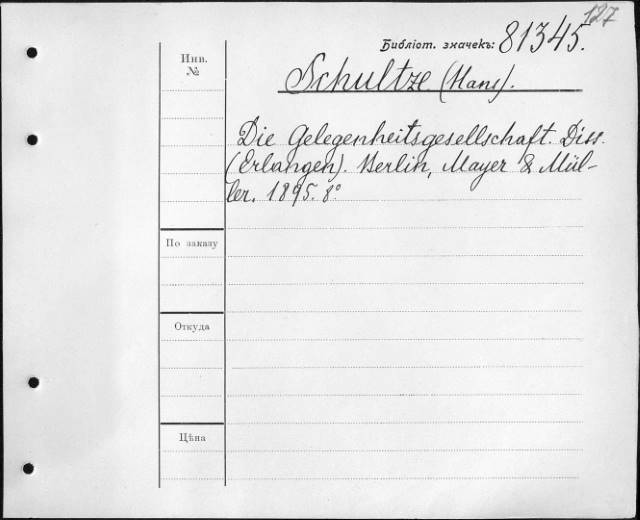 127
Библіот. значекъ: 81345.
Инв.
№
Schultze (Hans).
Die Gelegenheitsgesellschaft. Diss.
(Erlangen). Berlin, Mayer & Mül-
ler. 1895. 8°
По заказу
Откуда
Цѣна